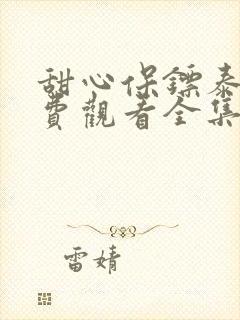 甜心保鏢泰
費觀看全集
雷婧